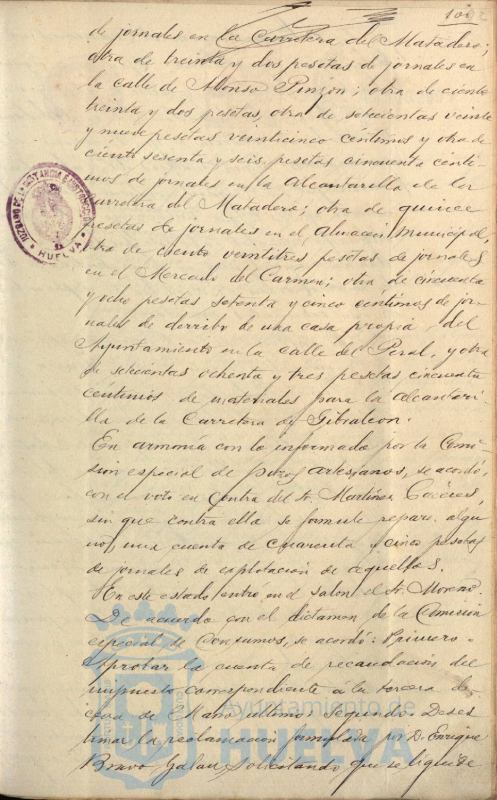 100
de jornales en la Carretera del Matadero;
otra de treinta y dos pesetas de jornales en
la calle de Alonso Pinzon; otra de ciento
treinta y dos pesetas, otra de setecientas veinte
y nueve pesetas veinticinco centimos y otra de
ciento sesenta y seis pesetas cincuenta centi-
mos de jornales en la alcantarilla de la
Carretera del Matadero; otra de quince
pesetas de jornales en el Almacen Municipal,
otra de ciento veintitres pesetas de jornales
en el Mercado del Carmen; otra de cincuenta
y ocho pesetas setenta y cinco centimos de jor-
nales de derribo de una casa propia del
Ayuntamiento en la calle del Peral, y otra
de setecientas ochenta y tres pesetas cincuenta
centimos de materiales para la alcantari-
lla de la Carretera de Gibraleon.
En armonía con lo informado por la Comi-
sion especial de pozos artesianos, se acordó,
con el voto en contra del Sr. Martinez
sin que contra ella se formule reparo algu-
no, una cuenta de cuarenta y cinco pesetas
de jornales de explotacion de aquellos.
En este estado entro en el salon el Sr. Moreno.
De acuerdo con el dictamen de la Comision
especial de Consumos, se acordó: Primero.
Aprobar la cuenta de recaudacion del
impuesto correspondiente á la tercera de-
cena de Mayo ultimo. Segundo. Deses-
timar la reclamacion formulada por D. Enrique
Bravo Galan, solicitando que se liquide
JUZGADO DE 1ª INSTANCIA E INSTRUCCION
HUELVA
Ayuntamiento de
HUELVA